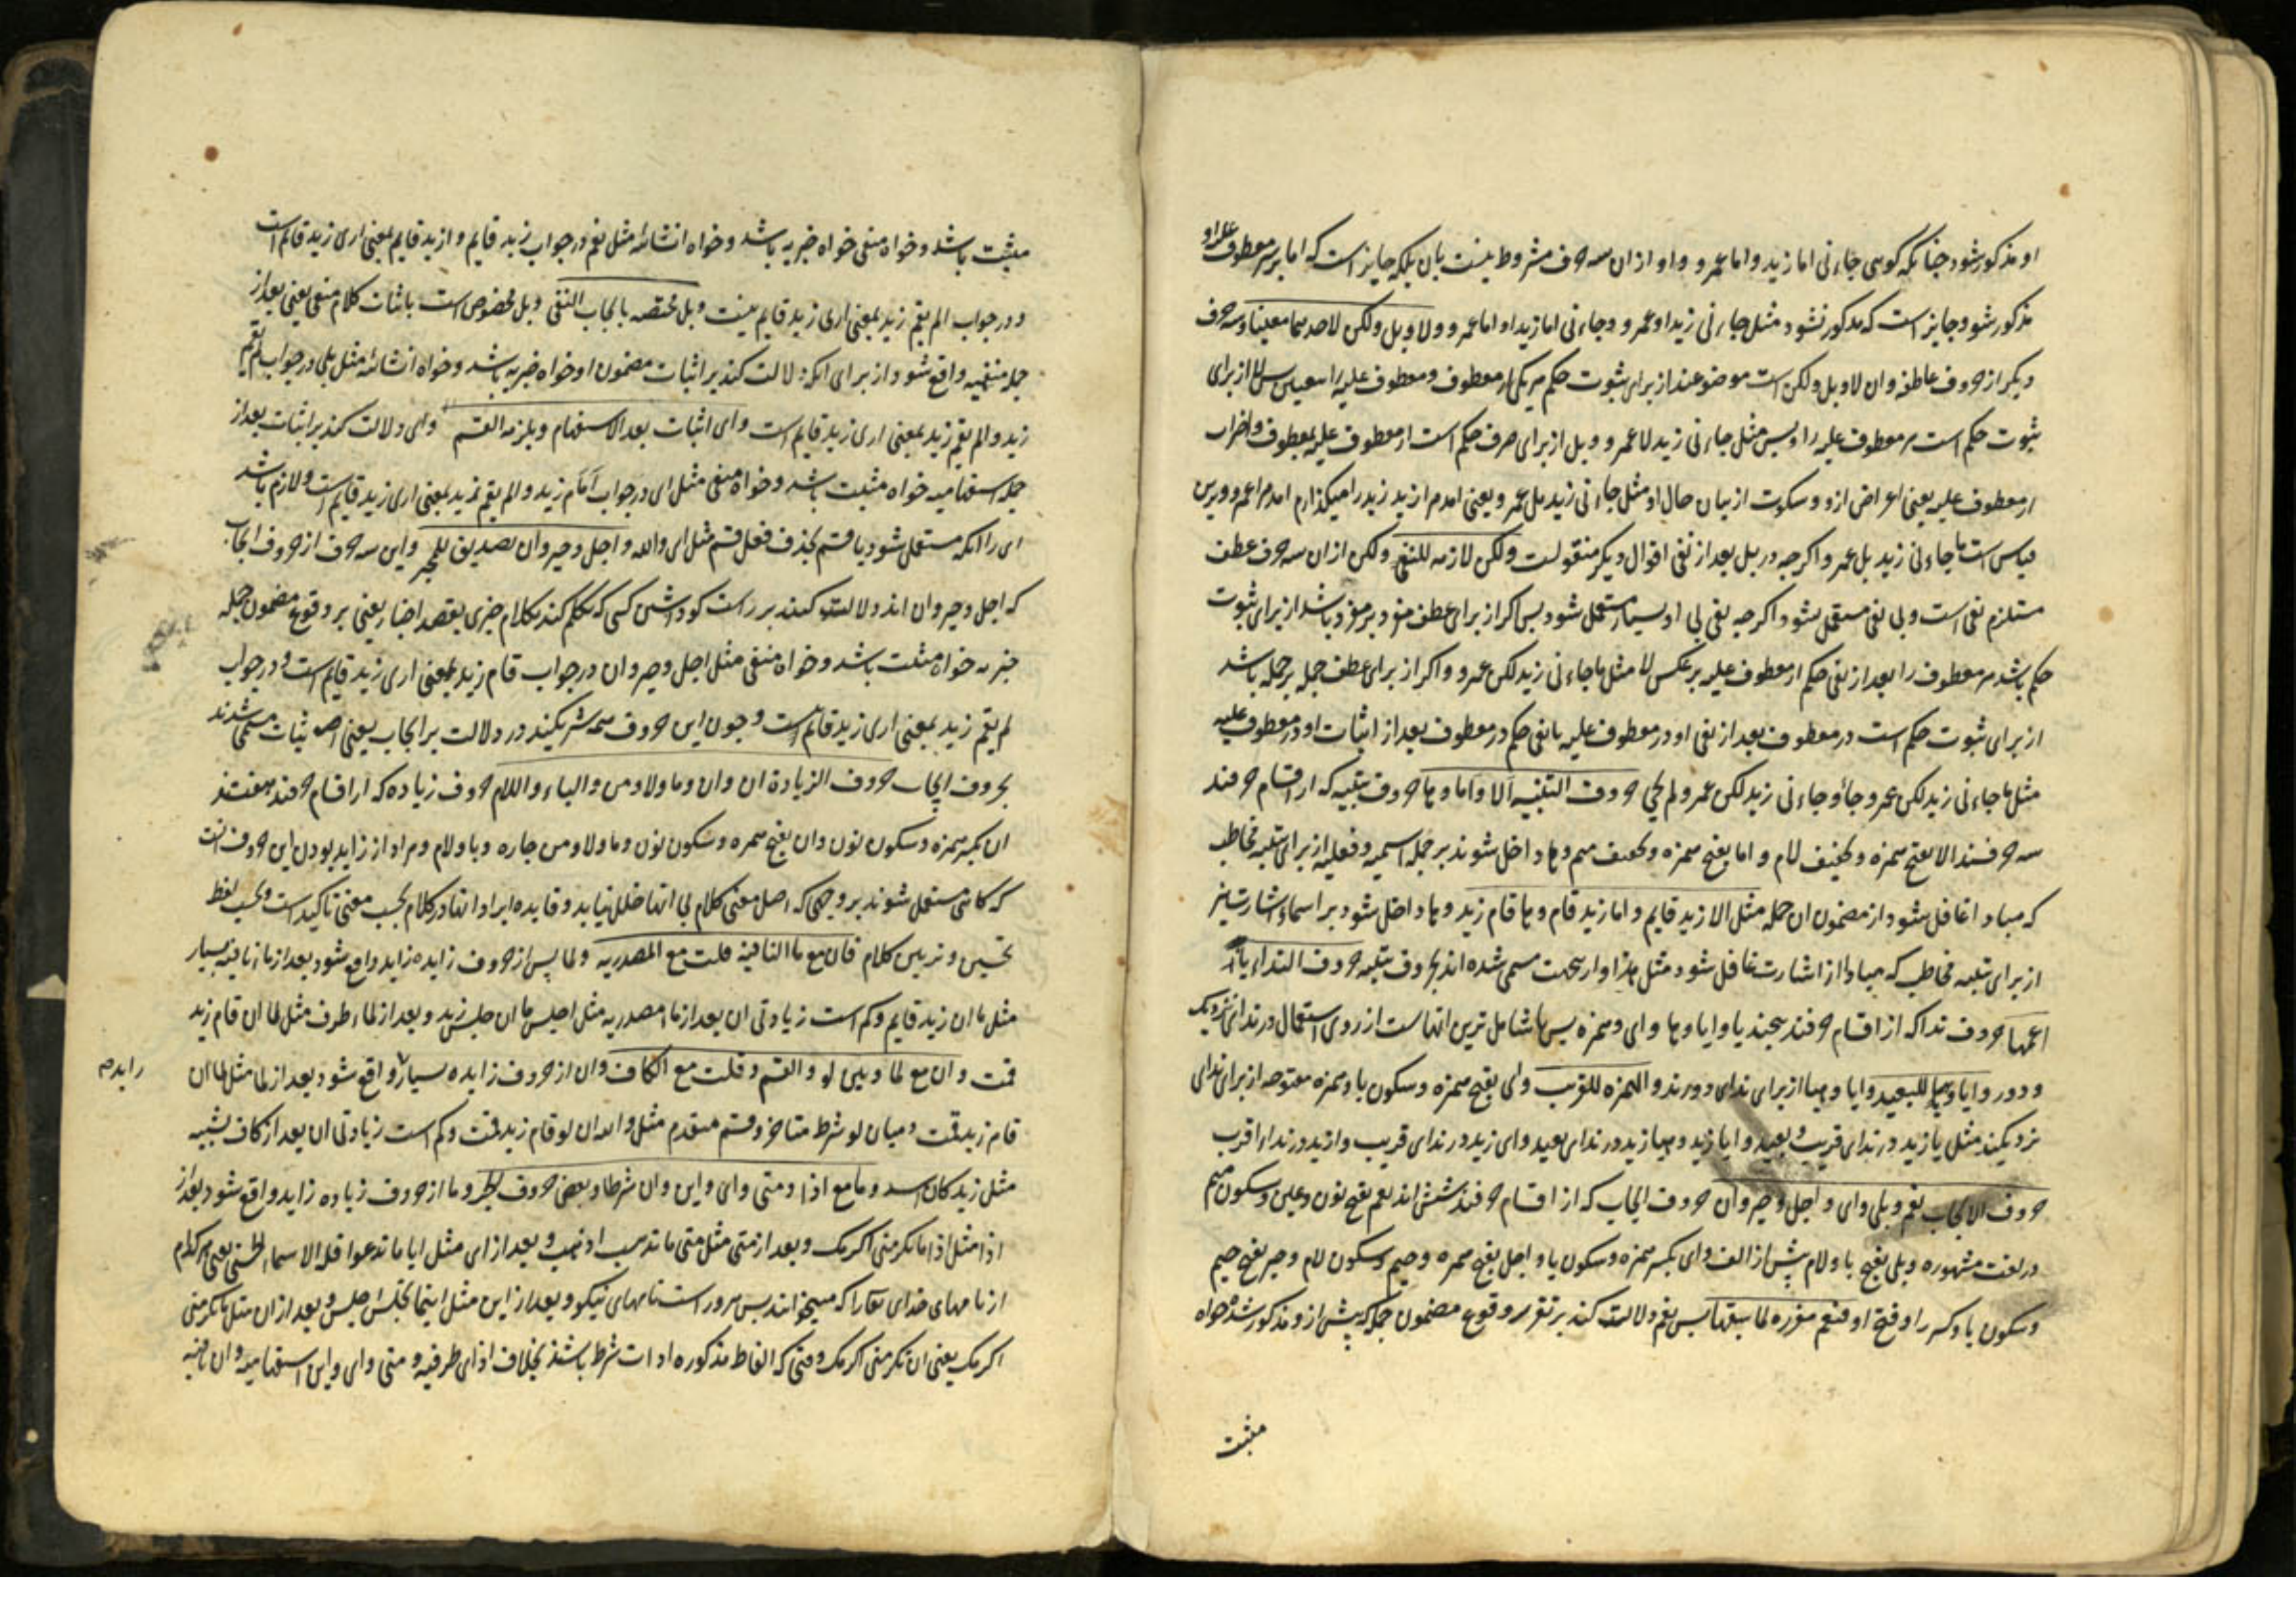 او مذکور شود چنانکه کوسی جاءنی اما زید و اما عمرو و او از ان سه حرف مشروط نیست بان بلکه جایز است که اما بر سر معطوف علیه او
مذکور شود و جایز است که مذکور نشود مثل جاءنی زید او عمرو و جاءنی اما زید او اما عمرو و لا و بل و لکن لاحدهما معینا و سه حرف
دیکر از حروف عاطفه و ان لا و بل و لکن است موضوعند از برای ثبوت حکم مر یکی از معطوف و معطوف علیه را بس لا از برای
ثبوت حکم است مر معطوف علیه را و بس مثل جاءنی زید لا عمرو و بل از برای صرف حکم است از معطوف علیه بمعطوف و اضراب
از معطوف علیه یعنی اعراض ازو و سکوت از بیان حال او مثل جاءنی زید بل عمرو یعنی امدم از زید زید را میکذارم امدم عمرو و برین
قیاس است ما جاءنی زید بل عمرو اکرچه در بل بعد از نفی اقوال دیکر منقولست و لکن لازمه للنفی و لکن از ان سه حرف عطف
مستلزم نفی است و بی نفی مستعمل نشود اکرچه نفی بی او بسیار مستعمل شود بس اکر از برای عطف مفرد بر مفرد باشد از برای ثبوت
حکم باشد مر معطوف را بعد از نفی حکم از معطوف علیه بر عکس لا مثل ما جاءنی زید لکن عمرو و اکر از برای عطف جمله بر جمله باشد
از برای ثبوت حکم است در معطوف بعد از نفی او در معطوف علیه یا نفی حکم در معطوف بعد از اثبات او در معطوف علیه
مثل ما جاءنی زید لکن عمرو جاء و جاءنی زید لکن عمرو لم یجئ حروف التنبیه الا و اما و ها حروف تنبیه که از اقسام حرفند
سه حرفند الا بفتح همزه و تخفیف لام و اما بفتح همزه و تخفیف میم و ها داخل شوند بر جمله اسمیه و فعلیه از برای تنبیه مخاطب
که مبادا غافل شود از مضمون ان جمله مثل الا زید قایم و اما زید قام و ها قام زید و ها داخل شود بر اسماء اشارت نیز
از برای تنبیه مخاطب که مبادا از اشارت غافل شود مثل هذا و از جهت مسمی شده اند بحروف تنبیه حروف النداء یا
اعمها حروف ندا که از اقسام حرفند پنجند یا و ایا و هیا و ای و همزه بس یا شامل ترین انهاست از روی استعمال در ندای نزدیک
و دور و ایا و هیا للبعید و ایا و هیا از برای ندای دورند و الهمزه للقریب و ای بفتح همزه و سکون یا و همزه مفتوحه از برای ندای
نزدیکند مثل یا زید در ندای قریب و بعید و ایا زید و هیا زید در ندای بعید و ای زید در ندای قریب و ازید در ندای اقرب
حروف الایجاب نعم و بلی و ای و اجل و جیر و ان حروف ایجاب که از اقسام حرفند شش اند نعم بفتح نون و عین و سکون میم
در لغت مشهوره و بلی بفتح با و لام پیش از الف و ای بکسر همزه و سکون یا و اجل بفتح همزه و جیم و سکون لام و جیر بفتح جیم
و سکون یا و کسر را و فتح او فنعم مقرره لما سبقها بس نعم دلالت کند بر تقریر وقوع مضمون جمله که پیش از و مذکور شده خواه
مثبت
مثبت باشد و خواه منفی خواه خبریه باشد و خواه انشائه مثل نعم در جواب زید قایم و ازید قایم بمعنی اری زید قایم است
و در جواب الم یقم زید بمعنی اری زید قایم نیست و بلی مختصه بایجاب النفی و بلی مخصوص است باثبات کلام منفی یعنی بعد از
جمله منفیه واقع شود از برای انکه دلالت کند بر اثبات مضمون او خواه خبریه باشد و خواه انشائه مثل بلی در جواب لم یقم
زید و الم یقم زید بمعنی اری زید قایم است و ای اثبات بعد الاستفهام و یلزمه القسم و ای دلالت کند بر اثبات بعد از
جمله استفهامیه خواه مثبت باشد و خواه منفی مثل ای در جواب اقام زید و الم یقم زید بمعنی اری زید قایم است و لازم باشد
ای را انکه مستعمل شود با قسم بحذف فعل قسم مثل ای والله و اجل و جیر و ان تصدیق للمخبر و این سه حرف از حروف ایجاب
که اجل و جیر و ان اند دلالت کنند بر راست کو داشتن کسی که تکلم کند بکلام خبری بقصد اخبار یعنی بر وقوع مضمون جمله
خبریه خواه مثبت باشد و خواه منفی مثل اجل و جیر و ان در جواب قام زید بمعنی اری زید قایم است و در جواب
لم یقم زید بمعنی اری زید قائم است و چون این حروف همه شریکند در دلالت بر ایجاب یعنی اثبات مسمی شدند
بحروف ایجاب حروف الزیادة ان و ان و ما و لا و من و الباء و اللام حروف زیاده که از اقسام حرفند هفتند
ان بکسر همزه و سکون نون و ان بفتح همزه و سکون نون و ما و لا و من جاره و با و لام و مراد از زاید بودن این حروف انست
که کاهی مستعمل شوند بر وجهی که اصل معنی کلام بی انها خلل نیابد و فایده ایراد انها در کلام بحسب معنی تاکید است و بحسب لفظ
تحسین و تزیین کلام فان مع ما النافیه قلت مع المصدریه و لما پس از حروف زایده زاید واقع شود بعد از ما نافیه بسیار
مثل ما ان زید قایم و کم است زیادتی ان بعد از ما مصدریه مثل اجلس ما ان جلس زید و بعد از لماء ظرف مثل لما ان قام زید
قمت و ان مع لما و بین لو و القسم و قلت مع الکاف و ان از حروف زایده بسیار واقع شود بعد از لما مثل لما ان
زایدم
قام زید قمت و میان لو شرط متاخر و قسم متقدم مثل والله ان لو قام زید قمت و کم است زیادتی ان بعد از کاف تشبیه
مثل زید کان اسد و ما مع اذا و متی و ای و این و ان شرطا و بعض حروف الجر و ما از حروف زیاده زاید واقع شود بعد از
اذا مثل اذا ما تکرمنی اکرمک و بعد از متی مثل متی ما تذهب اذهب و بعد از ای مثل ایا ما تدعوا فله الاسماء الحسنی یعنی هر کدام
از نامهای خدای تعالی را که میخوانند بس مر وراست نامهای نیکو و بعد از این مثل اینما تجلس اجلس و بعد از ان مثل ما تکرمنی
اکرمک یعنی ان تکرمنی اکرمک وقتی که الفاظ مذکوره ادات شرط باشند بخلاف اذای ظرفیه و متی و ای و این استفهامیه و ان نافیه